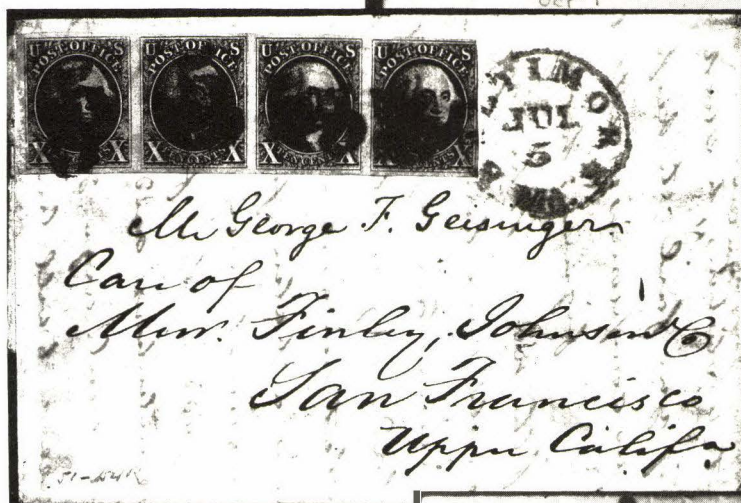 U S U S U S U S
POST OFFICE POST OFFICE POST OFFICE POST OFFICE
X X X X X X X
BALTIMORE
JUL
5
Mr George F. Geisinger
Care of
Messr. Finley, Johnson & Co
San Francisco
Upper Califa